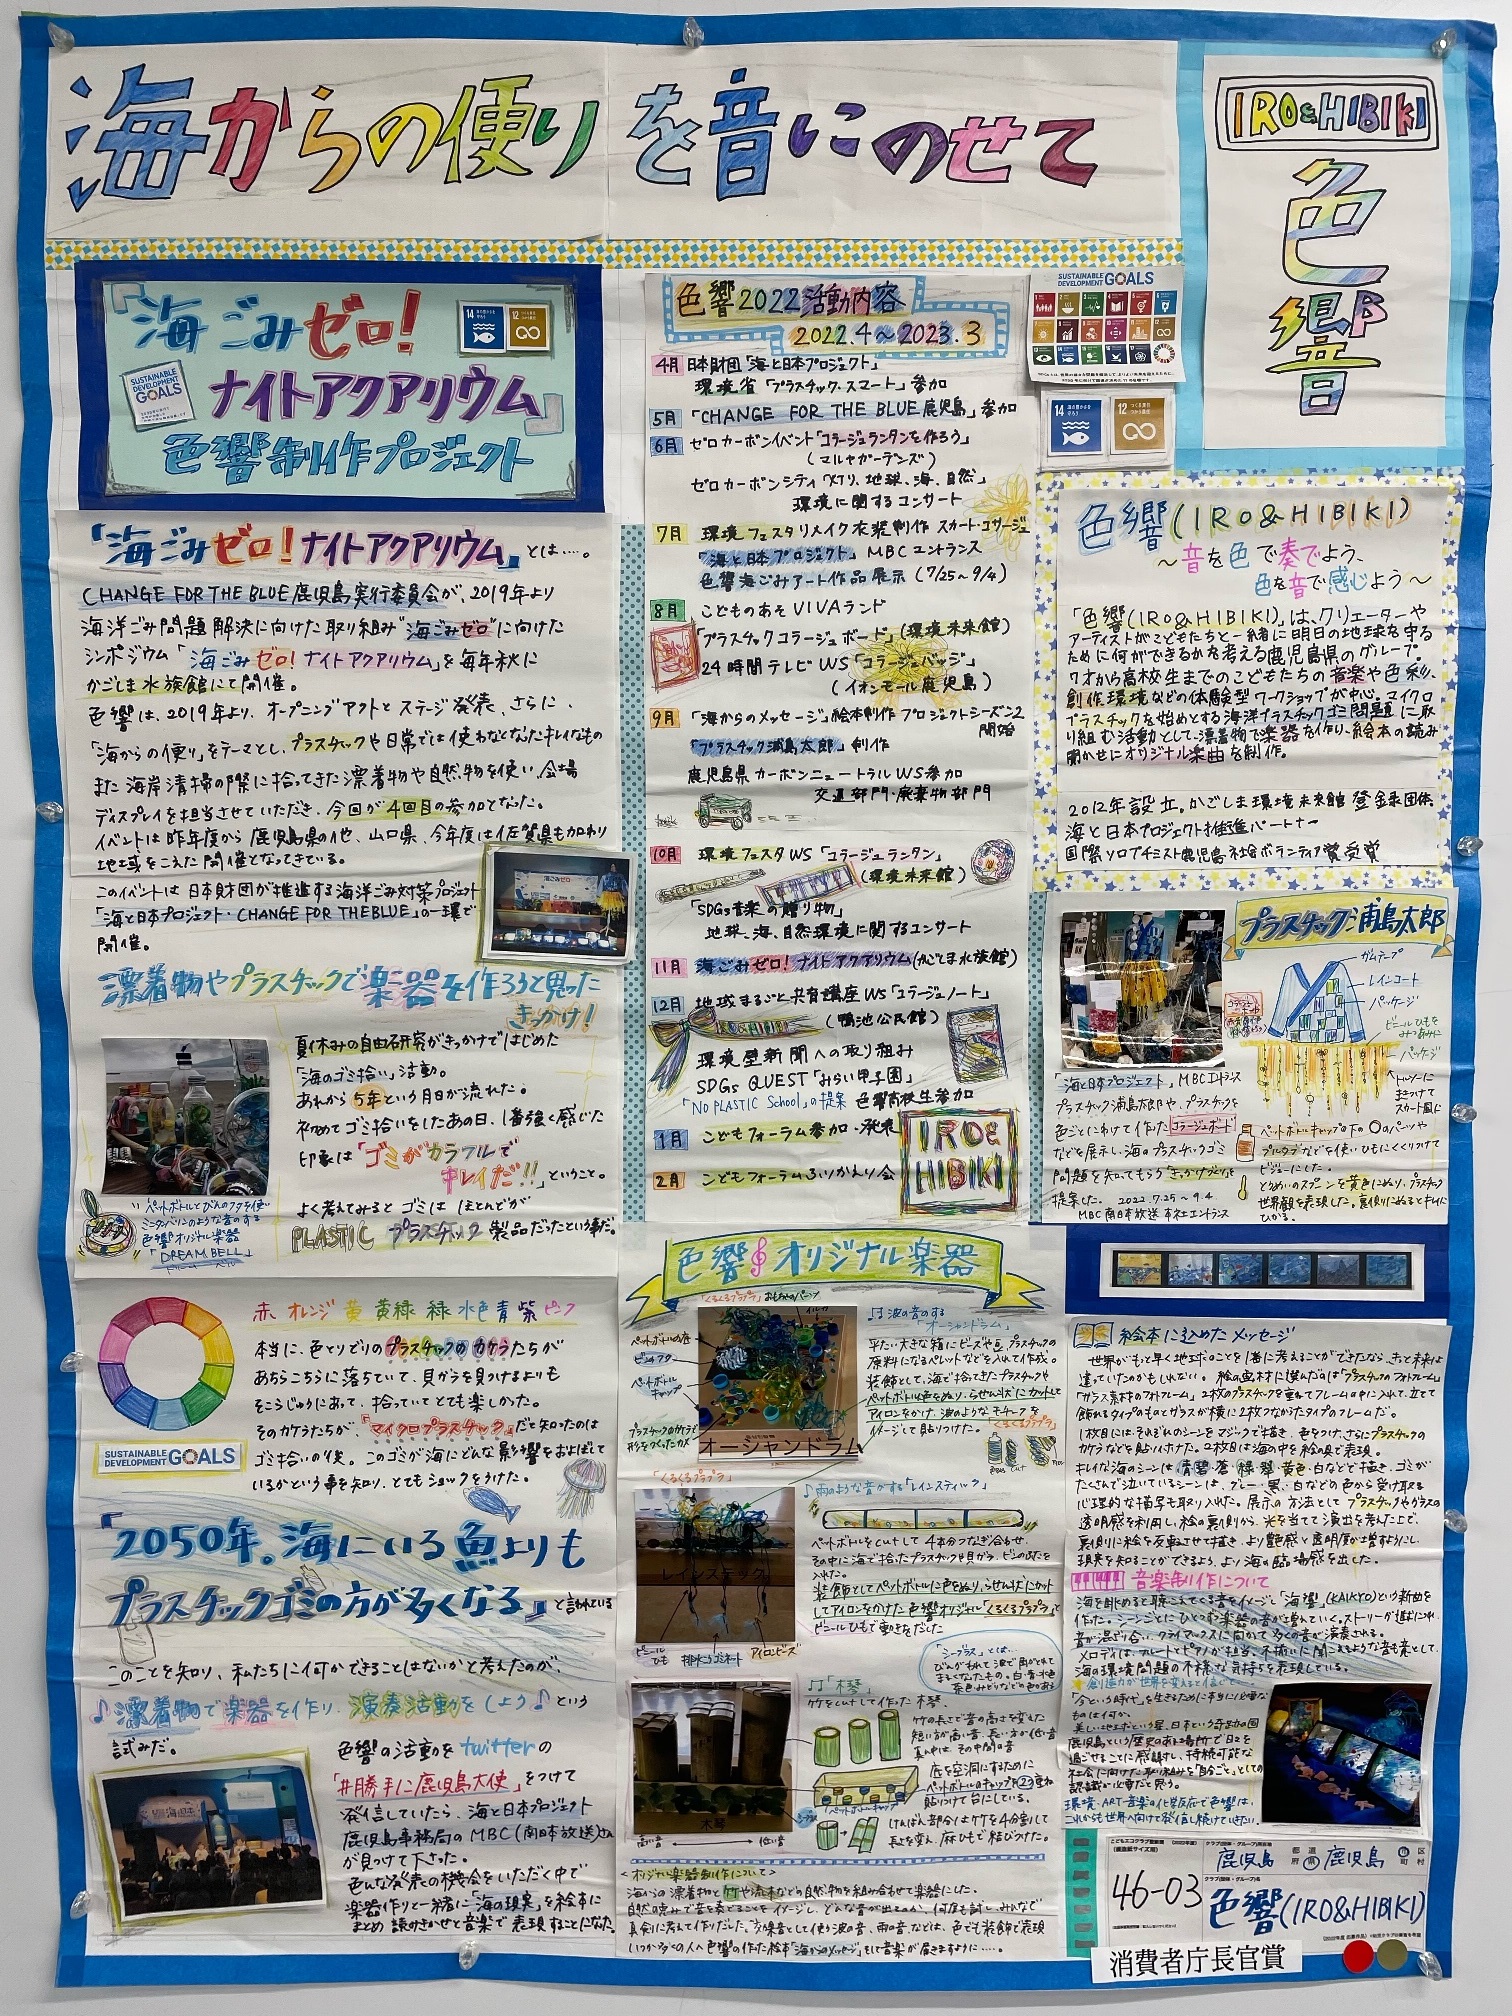 海からの便りを音にのせて
IRO&HIBIKI
色響
「海ごみゼロ!
ナイトアクアリウム」
色響制作プロジェクト
SUSTAINABLE DEVELOPMENT GOALS
14
12
「海ごみゼロ!ナイトアクアリウム」とは….。
CHANGE FOR THE BLUE鹿児島実行委員会が、2019年より
海洋ごみ問題解決に向けた取り組み"海ごみゼロ"に向けた
シンポジウム「海ごみゼロ!ナイトアクアリウム」を毎年秋に
かごしま水族館にて開催。
色響は、2019年より、オープニングアクトとステージ発表、さらに、
「海からの便り」をテーマとし、プラスチックや日常では使わなくなったキレイなもの
また海岸清掃の際に拾ってきた漂着物や自然物を使い、会場
ディスプレイを担当させていただき、今回が4回目の参加となった。
イベントは昨年度から鹿児島県の他、山口県、今年度は佐賀県も加わり
地域をこえた開催となってきている。
このイベントは日本財団が推進する海洋ごみ対策プロジェクト
「海と日本プロジェクト・CHANGE FOR THE BLUE」の一環で
開催。
漂着物やプラスチックで楽器を作ろうと思った
きっかけ!
夏休みの自由研究がきっかけではじめた
「海のゴミ拾い」活動。
あれから5年という月日が流れた。
初めてゴミ拾いをしたあの日、1番強く感じた
印象は「ゴミがカラフルで
キレイだ!!」ということ。
よく考えてみるとゴミはほとんどが
PLASTIC プラスチック製品だったという事だ。
ペットボトルとびんのフタを使い
ミニタンバリンのような音のする
色響オリジナル楽器
「DREAM BELL」
ドリーム ベル
赤 オレンジ 黄 黄緑 緑 水色 青 紫 ピンク
本当に、色とりどりのプラスチックのカケラたちが
あちらこちらに落ちていて、貝がらを見つけるよりも
そこらじゅうにあって、拾っていてとても楽しかった。
そのカケラたちが、「マイクロプラスチック」だと知ったのは
ゴミ拾いの後。このゴミが海にどんな影響をおよぼして
いるかという事を知り、とてもショックをうけた。
SUSTAINABLE DEVELOPMENT GOALS
「2050年。海にいる魚よりも
プラスチックゴミの方が多くなる」と言われている
このことを知り、私たちに何かできることはないかと考えたのが、
♪漂着物で楽器を作り、演奏活動をしよう♪という
試みだ。
色響の活動をtwitterの
「#勝手に鹿児島大使」をつけて
発信していたら、海と日本プロジェクト
鹿児島事務局のMBC(南日本放送)さん
が見つけて下さった。
色んな発表の機会をいただく中で
楽器作りと一緒に「海の現実」を絵本に
まとめ 読みきかせと音楽で表現することになった。
色響2022活動内容
2022.4~2023.3
4月 日本財団「海と日本プロジェクト」
環境省「プラスチック・スマート」参加
5月 「CHANGE FOR THE BLUE鹿児島」参加
6月 ゼロカーボンイベント「コラージュランタンを作ろう」
(マルヤガーデンズ)
ゼロカーボンシティ 地球、海、自然
環境に関するコンサート
7月 環境フェスタリメイク衣装制作 スカート・コサージュ
「海と日本プロジェクト」MBCエントランス
色響海ごみアート作品展示(7/25~9/4)
8月 こどものあそVIVAランド
「プラスチックコラージュボード」(環境未来館)
24時間テレビWS「コラージュバッジ」
(イオンモール鹿児島)
9月 「海からのメッセージ」絵本制作プロジェクトシーズン2
開始
「プラスチック浦島太郎」創作
鹿児島県カーボンニュートラルWS参加
交通部門・廃棄物部門
10月 環境フェスタWS「コラージュランタン」
(環境未来館)
「SDGs音楽の贈り物」
地球、海、自然環境に関するコンサート
11月 海ごみゼロ!ナイトアクアリウム(かごしま水族館)
12月 地域まるごと共育講座WS「コラージュノート」
(鴨池公民館)
環境壁新聞への取り組み
SDGs QUEST「みらい甲子園」
「NO PLASTIC School」の提案 色響高校生参加
1月 こどもフォーラム参加・発表
2月 こどもフォーラムふりかえり会
IRO&
HIBIKI
SUSTAINABLE DEVELOPMENT GOALS
14
12 つくる責任 つかう責任
色響(IRO&HIBIKI)
~音を色で奏でよう、
色を音で感じよう~
「色響(IRO&HIBIKI)」は、クリエーターや
アーティストがこどもたちと一緒に明日の地球を守る
ために何ができるかを考える鹿児島県のグループ。
0才から高校生までのこどもたちの音楽や色彩、
創作環境などの体験型ワークショップが中心。マイクロ
プラスチックを始めとする海洋プラスチックゴミ問題に取
り組む活動として、漂着物で楽器を作り、絵本の読み
聞かせにオリジナル楽曲を制作。
2012年設立。かごしま環境未来館登録団体
海と日本プロジェクト推進パートナー
国際ソロプチミスト鹿児島社会ボランティア賞受賞
プラスチック浦島太郎
ガムテープ
レインコート
パッケージ
ビニールひもを
みつあみに
パッケージ
「海と日本プロジェクト」MBCエントランス
プラスチック浦島太郎や、プラスチックを
色ごとにわけて作ったコラージュボード
などを展示し、海のプラスチックゴミ
問題を知ってもらうきっかけづくりを
提案した。 2022.7.25~9.4
MBC南日本放送 本社エントランス
ペットボトルキャップの下の〇のパーツや
プルタブなどを使いひもにくくりつけて
ビジューにした。
とうめいのスプーンを黄色にぬり、プラスチック
世界観を表現した。裏側にぬるとキレイに
ひかる。
色響オリジナル楽器
「くるくるプラプラ」
ペットボトルの底
ペットボトル
キャップ
プラスチックのカケラで
形をつくったカメ
オーシャンドラム
♪波の音のする
「オーシャンドラム」
平たい大きな箱にビーズや豆、プラスチックの
原料になるペレットなどを入れて作成。
装飾として、海で拾ったプラスチックや
ペットボトル色をぬり、らせん状にカットして
アイロンをかけ、波のようなモチーフを
イメージして貼りつけた。
「くるくるプラプラ」
♪雨のような音がする「レインスティック」
レインスティック
ペットボトルをcutして4本分つなぎ合わせ、
その中に海で拾ったプラスチックや貝がら、ビンのふたを
入れた。
装飾としてペットボトルに色をぬり、らせん状にカット
してアイロンをかけた色響オリジナル「くるくるプラプラ」と
ビニールひもで動きをだした
ビニール
ひも
排水口ゴミネット
アイロンビーズ
「シーグラス」とは…
びんがわれて波で角がとれて
まるくなったもの。白・青・水色
茶色・みどりなどの色がある
♪「木琴」
竹をcutして作った木琴。
竹の長さで音の高さを変えた
短い方が高い音、長い方が低い音
真ん中は、その中間の音
底を空洞にするために
ペットボトルのキャップを2コ重ね
貼りつけて台にしている。
けんばん部分は竹を4分割して
長さを変え、麻ひもで結びつけた。
木琴
高い音
低い音
<オリジナル楽器制作について>
海からの漂着物と竹や流木などの自然物を組み合わせて楽器にした。
自然の恵みで音を奏でることをイメージし、どんな音が出るのか、何度も試し、みんなで
真剣に考えて作りだした。効果音として使う波の音、雨の音などは、色でも装飾で表現
いつか多くの人へ色響の作った絵本「海からのメッセージ」をして音楽が届きますように….。
絵本に込めたメッセージ
世界がもっと早く地球のことを1番に考えることができたなら、きっと未来は
違っていたのかもしれない。絵の画材に選んだのは「プラスチックのフォトフレーム」
「ガラス素材のフォトフレーム」2枚のプラスチックを重ねてフレームの中に入れて、立てて
飾れるタイプのものとガラスが横に2枚つながったタイプのフレームだ。
1枚目には、それぞれのシーンをマジックで描き、色をつけ、さらにプラスチックの
カケラなどを貼りつけた。2枚目は海の中を絵の具で表現。
キレイな海のシーンは青、碧、蒼、緑、翠、黄色、白などで描き、ゴミが
たくさんで泣いているシーンは、グレー・黒・白などの色から受け取る
心理的な描写も取り入れた。展示の方法としてプラスチックやガラスの
透明感を利用し、絵の裏側から、光を当てて演出を考えた上で、
裏側に絵を反転させて描き、より艶感と透明度が増すようにし、
現実を知ることができるよう、より海の臨場感を出した。
音楽制作について
海を眺めると聴こえてくる音をイメージし「海響」(KAIKYO)という新曲を
作った。シーンごとにひとつずつ楽器の音が増えていく。ストーリーが進むにつれ
音が混ざり合い、クライマックスに向かって多くの音が演奏される。
メロディは、フルートとピアノが担当。不揃いに聞こえるような音も音として、
海の環境問題の不穏な気持ちを表現している。
創造力が世界を変えると信じて…
「今という時代」を生きるために本当に必要な
ものは何か。
美しい地球という星、日本という奇跡の国
鹿児島という歴史のある場所で日々を
過ごせることに感謝し、持続可能な
社会に向けた取り組みを「自分ごと」としての
認識が必要だと思う。
環境・ART・音楽の化学反応で色響は、
これからも世界へ向けて発信し続けていきたい。
46-03
鹿児島
都道府県
鹿児島
市区町村
色響(IRO&HIBIKI)
消費者庁長官賞